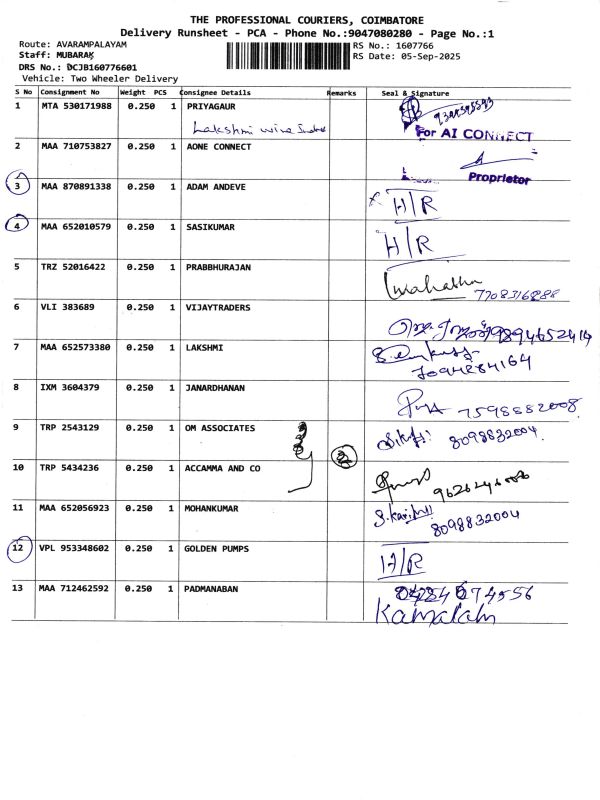 THE PROFESSIONAL COURIERS, COIMBATORE
Delivery Runsheet - PCA - Phone No.:9047080280 - Page No.:1
Route: AVARAMPALAYAM RS No.: 1607766
Staff: MUBARAK RS Date: 05-Sep-2025
DRS No.: DCJB160776601
Vehicle: Two Wheeler Delivery
S No Consignment No Weight PCS Consignee Details Remarks Seal & Signature
1 MTA 530171988 0.250 1 PRIYAGAUR
Lakshmi wire
For AI CONNECT
2 MAA 710753827 0.250 1 AONE CONNECT
Proprietor
3 MAA 870891338 0.250 1 ADAM ANDEVE H/R
4 MAA 652010579 0.250 1 SASIKUMAR H/R
5 TRZ 52016422 0.250 1 PRABBHURAJAN
7708316888
6 VLI 383689 0.250 1 VIJAYTRADERS
9894652414
7 MAA 652573380 0.250 1 LAKSHMI
7094284164
8 IXM 3604379 0.250 1 JANARDHANAN
7598882008
9 TRP 2543129 0.250 1 OM ASSOCIATES
8098832004
10 TRP 5434236 0.250 1 ACCAMMA AND CO
11 MAA 652056923 0.250 1 MOHANKUMAR
8098832004
12 VPL 953348602 0.250 1 GOLDEN PUMPS H/R
13 MAA 712462592 0.250 1 PADMANABAN
Kamalam